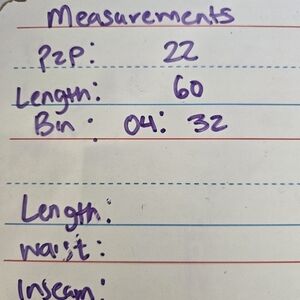 Measurements
P2P: 22
Length: 60
Bin: 04: 32
Length:
Waist:
Inseam: